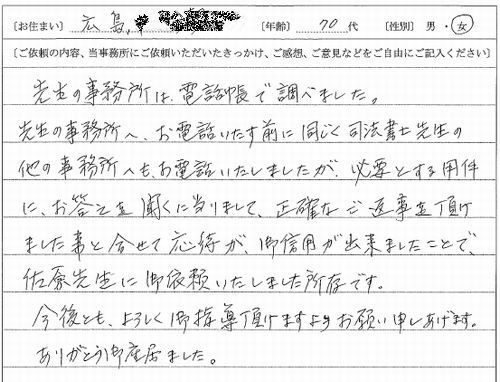 [お住まい] 広島 [年齢] 70代 [性別] 男・女
[ご依頼の内容、当事務所にご依頼いただいたきっかけ、ご感想、ご意見などをご自由にご記入ください]
先生の事務所は、電話帳で調べました。
先生の事務所へ、お電話いたす前に同じく司法書士先生の
他の事務所へも、お電話いたしましたが、必要とする用件
に、お答えを聞くに当りまして、正確なご返事を頂け
ました事と合せて応待が、御信用が出来ましたことで、
佐原先生に御依頼いたしました所存です。
今後とも、よろしく御指導頂けますようお願い申しあげます。
ありがとう御座居ました。